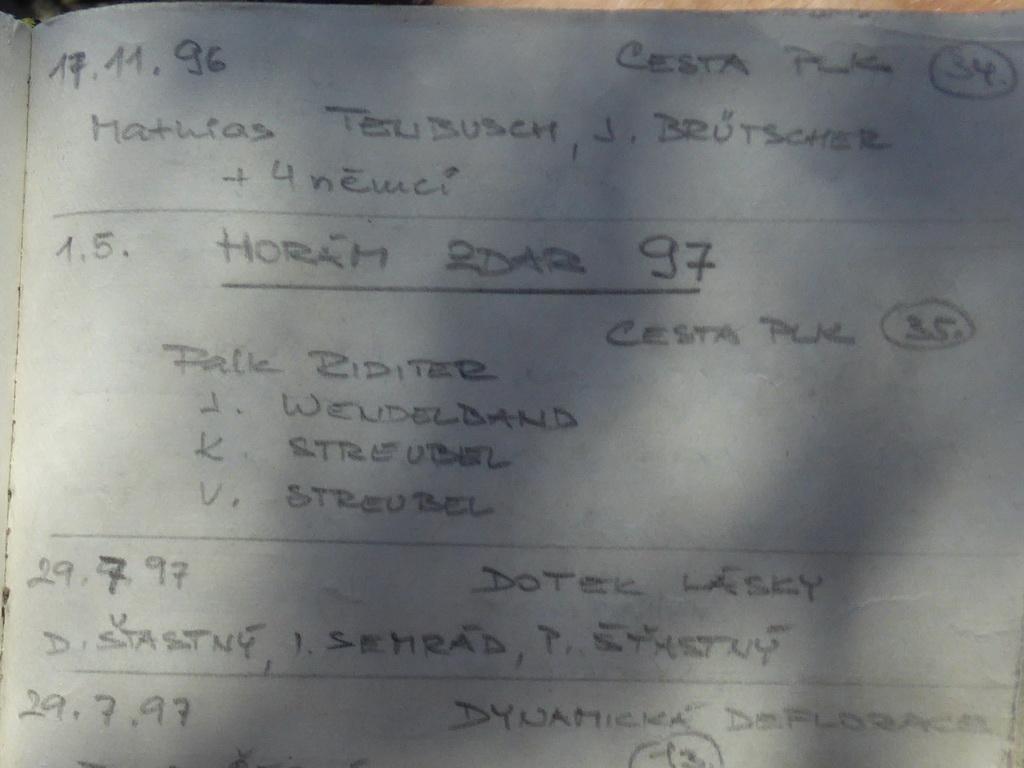 17.11.96 CESTA PLK 34.
Mathias TENBUSCH, J. BRÜTSCHER
+ 4 němci
1.5. HORÁM ZDAR 97
CESTA PLK 35.
Falk RIDITER
J. WENDELBAND
K. STREUBEL
V. STREUBEL
29.7 97 DOTEK LÁSKY
D. ŠŤASTNÝ, I. SEMRÁD, P. ŠŤASTNÝ
29.7.97 DYNAMICKÁ